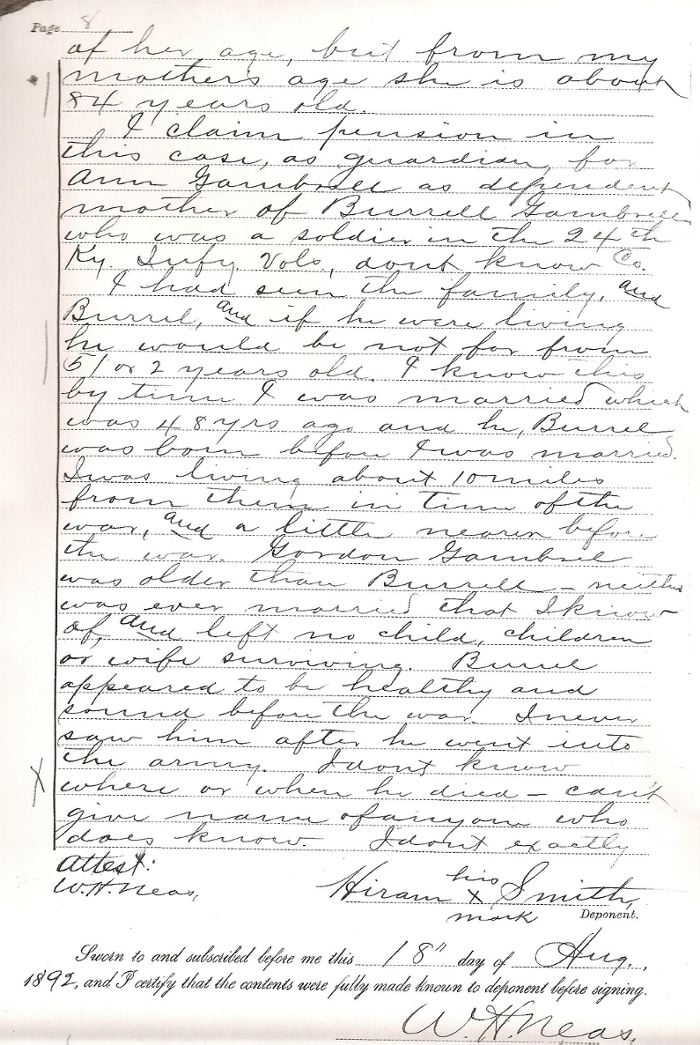 Page 8
of her age, but from my
mothers age she is about
84 years old.
I claim pension in
this case, as guardian, for
Ann Gambrell as dependent
mother of Burrell Gambrell
who was a soldier in the 24th
Ky Infy Vols, dont know Co.
I had seen the family, and
Burrel, and if he were living
he would be not far from
51 or 2 years old. I know this
by time I was married which
was 48 yrs ago and he, Burrel
was born before I was married.
I was living about 10 miles
from them in time of the
war, and a little nearer before
the war. Gordon Gambrel
was older than Burrell - neither
was ever married that I know
of, and left no child, children
or wife surviving. Burrel
appeared to be healthy and
sound before the war. I never
saw him after he went into
the army. I dont know
where or when he died - can't
give name of anyone who
does know. I dont exactly
X
Attest:
W.H. Neas,
Hiram his X mark Smith,
Deponent.
Sworn to and subscribed before me this 18" day of Aug.,
1892, and I certify that the contents were fully made known to deponent before signing.
W.H. Neas,